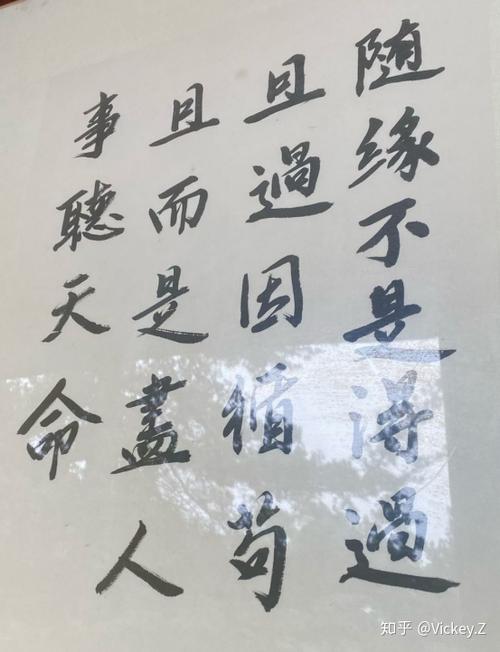 随缘不是得過
且過因循苟
且而是盡人
事聽天命
知乎 @Vickey.Z